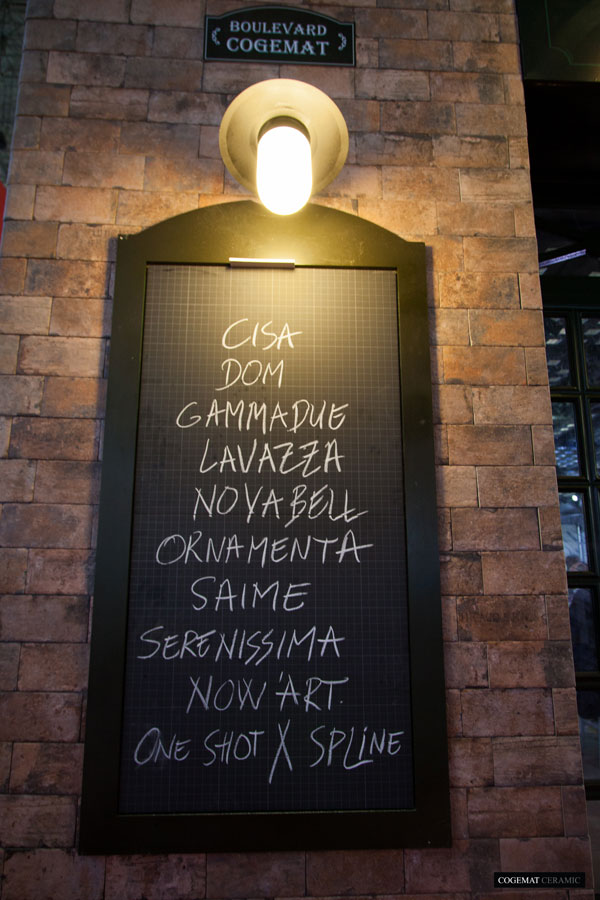 BOULEVARD
COGEMAT
CISA
DOM
GAMMADUE
LAVAZZA
NOVABELL
ORNAMENTA
SAIME
SERENISSIMA
NOW'ART.
ONE SHOT X SPLINE
COGEMAT CERAMIC